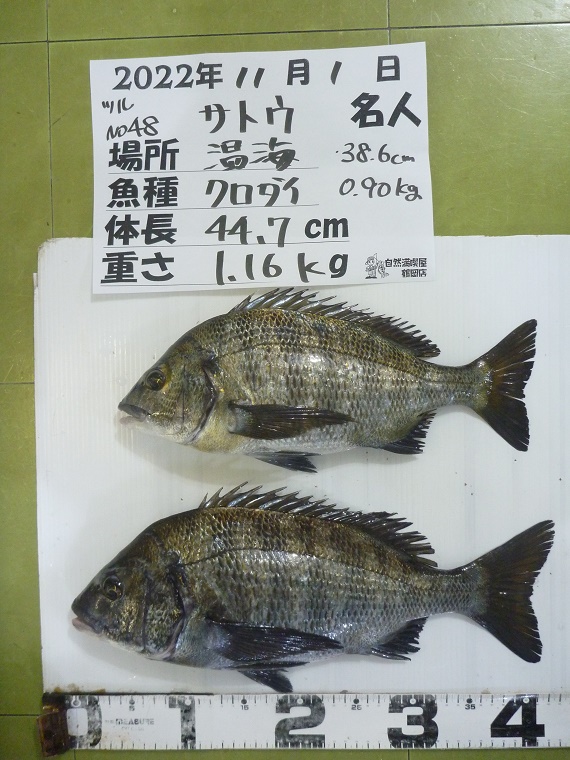 2022年 11月 1日
ツル No48 サトウ 名人
場所 温海 38.6cm
魚種 クロダイ 0.90kg
体長 44.7cm
重さ 1.16kg
自然満喫屋
鶴岡店
0 5 1 2 25 3 35 4
MEASURE